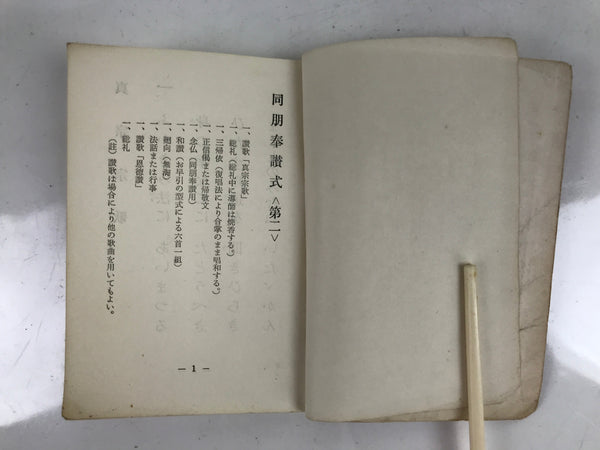 同朋奉讃式＜第二＞
一、讃歌「真宗宗歌」
一、総礼（総礼中に導師は焼香する。）
一、三帰依（復唱法により合掌のまま唱和する。）
一、正信偈または帰敬文
一、念仏（同朋奉讃用）
一、和讃（お早引の型式による六首一組）
一、廻向（無淘）
一、法話または行事
一、讃歌「恩徳讃」
一、総礼
（註）讃歌は場合により他の歌曲を用いてもよい。
— 1 —